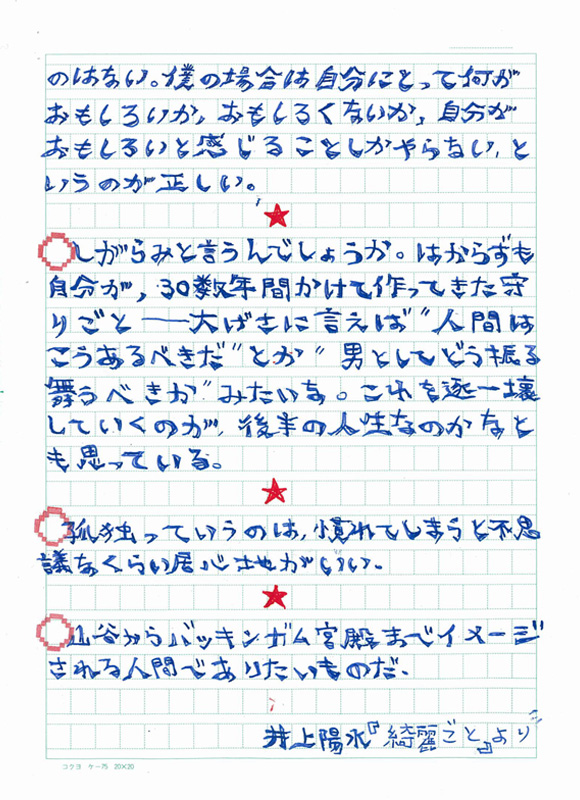 のはない。僕の場合は自分にとって何が
おもしろいか、おもしろくないか、自分が
おもしろいと感じることしかやらない、と
いうのが正しい。
★
○しがらみと言うんでしょうか。はからずも
自分が、30数年間かけて作ってきた守
りごと――大げさに言えば“人間は
こうあるべきだ”とか“男としてどう振る
舞うべきか”みたいな。これを逐一壊
していくのが、後半の人生なのかなと
も思っている。
★
○孤独っていうのは、慣れてしまうと不思
議なくらい居心地がいい。
★
○山谷からバッキンガム宮殿までイメージ
される人間でありたいものだ。
井上陽水『綺麗ごと』より
コクヨ ケー75 20×20